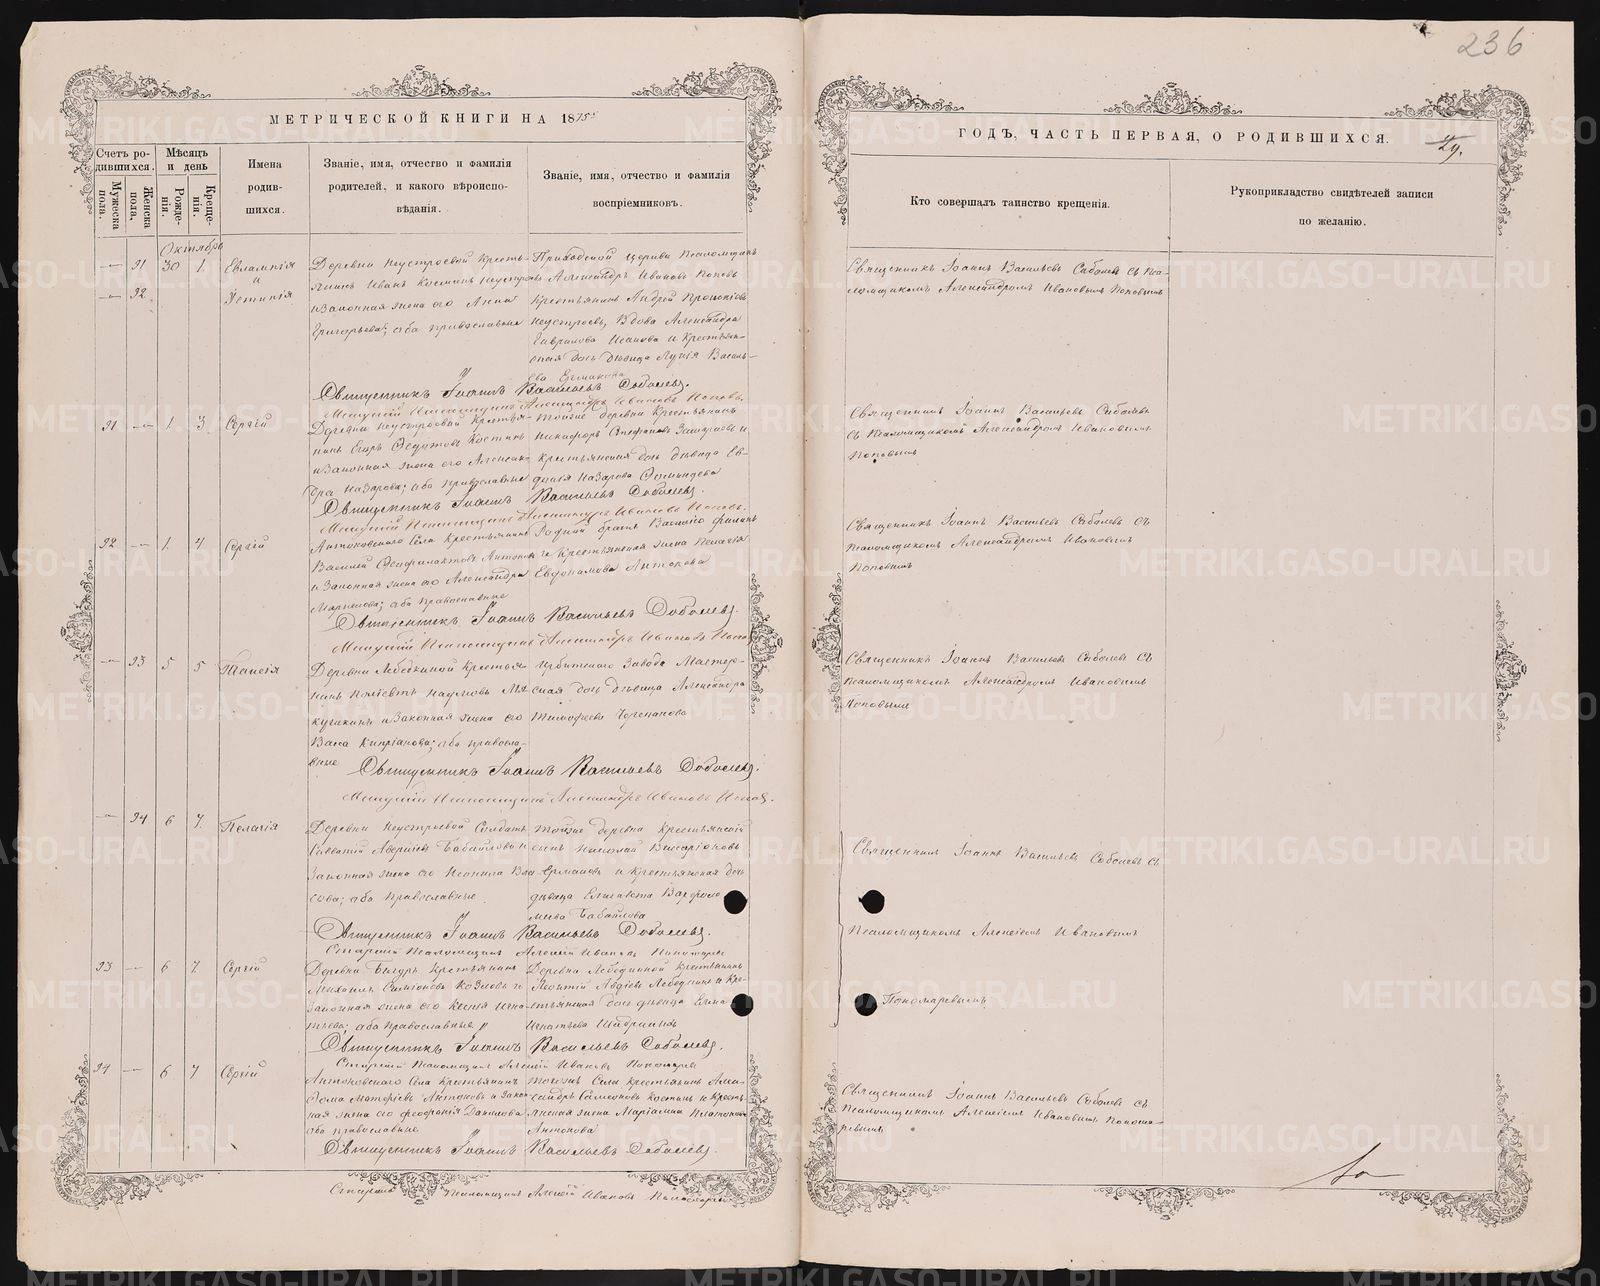 236
МЕТРИЧЕСКОЙ КНИГИ НА 1875
ГОДЪ, ЧАСТЬ ПЕРВАЯ, О РОДИВШИХСЯ.
Счетъ родившихся.
Мужеска пола.
Женска пола.
Мѣсяцъ и день
Рожденія.
Крещенія.
Имена родившихся.
Званіе, имя, отчество и фамилія родителей, и какого вѣроисповѣданія.
Званіе, имя, отчество и фамилія воспріемниковъ.
Кто совершалъ таинство крещенія.
Рукоприкладство свидѣтелей записи по желанію.
Октябрь
— 91 30 1. Евлампія
и
— 92.
Деревни Неустроевой Кресть-
янинъ Иванъ
и Законная жена его Анна
Григорьева; оба православные
Приходской церкви Псаломщикъ
Александръ Ивановъ Поповъ
Крестьянинъ Андрей
Неустроевъ, Вдова Александра
Гаврилова и Крестьян-
ская дочь дѣвица Василь-
ева
Священникъ Іоаннъ Васильевъ Соболевъ съ Пса-
ломщикомъ Александромъ Ивановымъ Поповымъ
Священникъ Іоаннъ Васильевъ Соболевъ.
Младшій Псаломщикъ Александръ Ивановъ Поповъ.
91 — 1 3 Сергій
Деревни Неустроевой Крестья-
нинъ Егоръ Федотовъ Костинъ
и Законная жена его Алексан-
дра Назарова; оба православные
Тойже деревни Крестьянинъ
Никифоръ Стефановъ и
Крестьянская дочь дѣвица Ев-
Назарова
Священникъ Іоаннъ Васильевъ Соболевъ
съ Псаломщикомъ Александромъ Ивановымъ
Поповымъ
Священникъ Іоаннъ Васильевъ Соболевъ.
Младшій Псаломщикъ Александръ Ивановъ Поповъ.
92 — 1. 4 Сергій
Антоновскаго Села Крестьянинъ
Василій Феофилактовъ Антоновъ
и Законная жена его Александра
оба православные
Родной братъ Василія
и Крестьянская жена Пелагія
Евдокимова Антонова
Священникъ Іоаннъ Васильевъ Соболевъ съ
Псаломщикомъ Александромъ Ивановымъ
Поповымъ
Священникъ Іоаннъ Васильевъ Соболевъ.
Младшій Псаломщикъ Александръ Ивановъ
— 93 5 5 Таисія
Деревни Лебедкиной Крестья-
нинъ Наумовъ
и Законная жена его
Васса Кипріанова; оба правосла-
вные
Ирбитскаго Завода Мастер-
ская дочь дѣвица Александра
Тимофеева Черепанова
Священникъ Іоаннъ Васильевъ Соболевъ съ
Псаломщикомъ Александромъ Ивановымъ
Поповымъ
Священникъ Іоаннъ Васильевъ Соболевъ.
Младшій Псаломщикъ Александръ Ивановъ Поповъ.
— 94 6 7 Пелагія
Деревни Неустроевой Солдатъ
Савватій Бабайловъ и
Законная жена его Неонила Вла-
сова; оба православные
Тойже деревни Крестьянскій
сынъ Николай Виссаріоновъ
Ермаковъ и Крестьянская дочь
дѣвица Елисавета Варфоло-
меева Бабайлова
Священникъ Іоаннъ Васильевъ Соболевъ съ
Псаломщикомъ Алексіемъ Ивановымъ
Пономаревымъ
Священникъ Іоаннъ Васильевъ Соболевъ.
Старшій Псаломщикъ Алексій Ивановъ Пономаревъ
93 — 6 7 Сергій
Деревни Крестьянинъ
Михаилъ Симіоновъ Козловъ и
Законная жена его Ксенія Игна-
тьева; оба православные
Деревни Лебедкиной Крестьянинъ
Леонтій Авдіевъ Лебедкинъ и Кре-
стьянская дочь дѣвица
Игнатьева
Священникъ Іоаннъ Васильевъ Соболевъ.
Старшій Псаломщикъ Алексій Ивановъ Пономаревъ
94 — 6 7 Сергій
Антоновскаго Села Крестьянинъ
Фома Матфіевъ Антоновъ и Закон-
ная жена его Феофанія Данилова
оба православные
Тогожъ Села Крестьянинъ Алек-
сандръ Самсоновъ Костинъ и Кресть-
янская жена Маріамна Платонова
Антонова
Священникъ Іоаннъ Васильевъ Соболевъ съ
Псаломщикомъ Алексіемъ Ивановымъ Понома-
ревымъ
Священникъ Іоаннъ Васильевъ Соболевъ.
Старшій Псаломщикъ Алексій Ивановъ Пономаревъ
METRIKI.GASO-URAL.RU